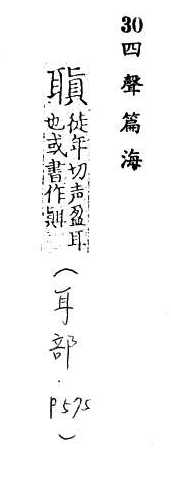 30四聲篇海
徒年切声盈耳
也或書作
（耳部．P575）